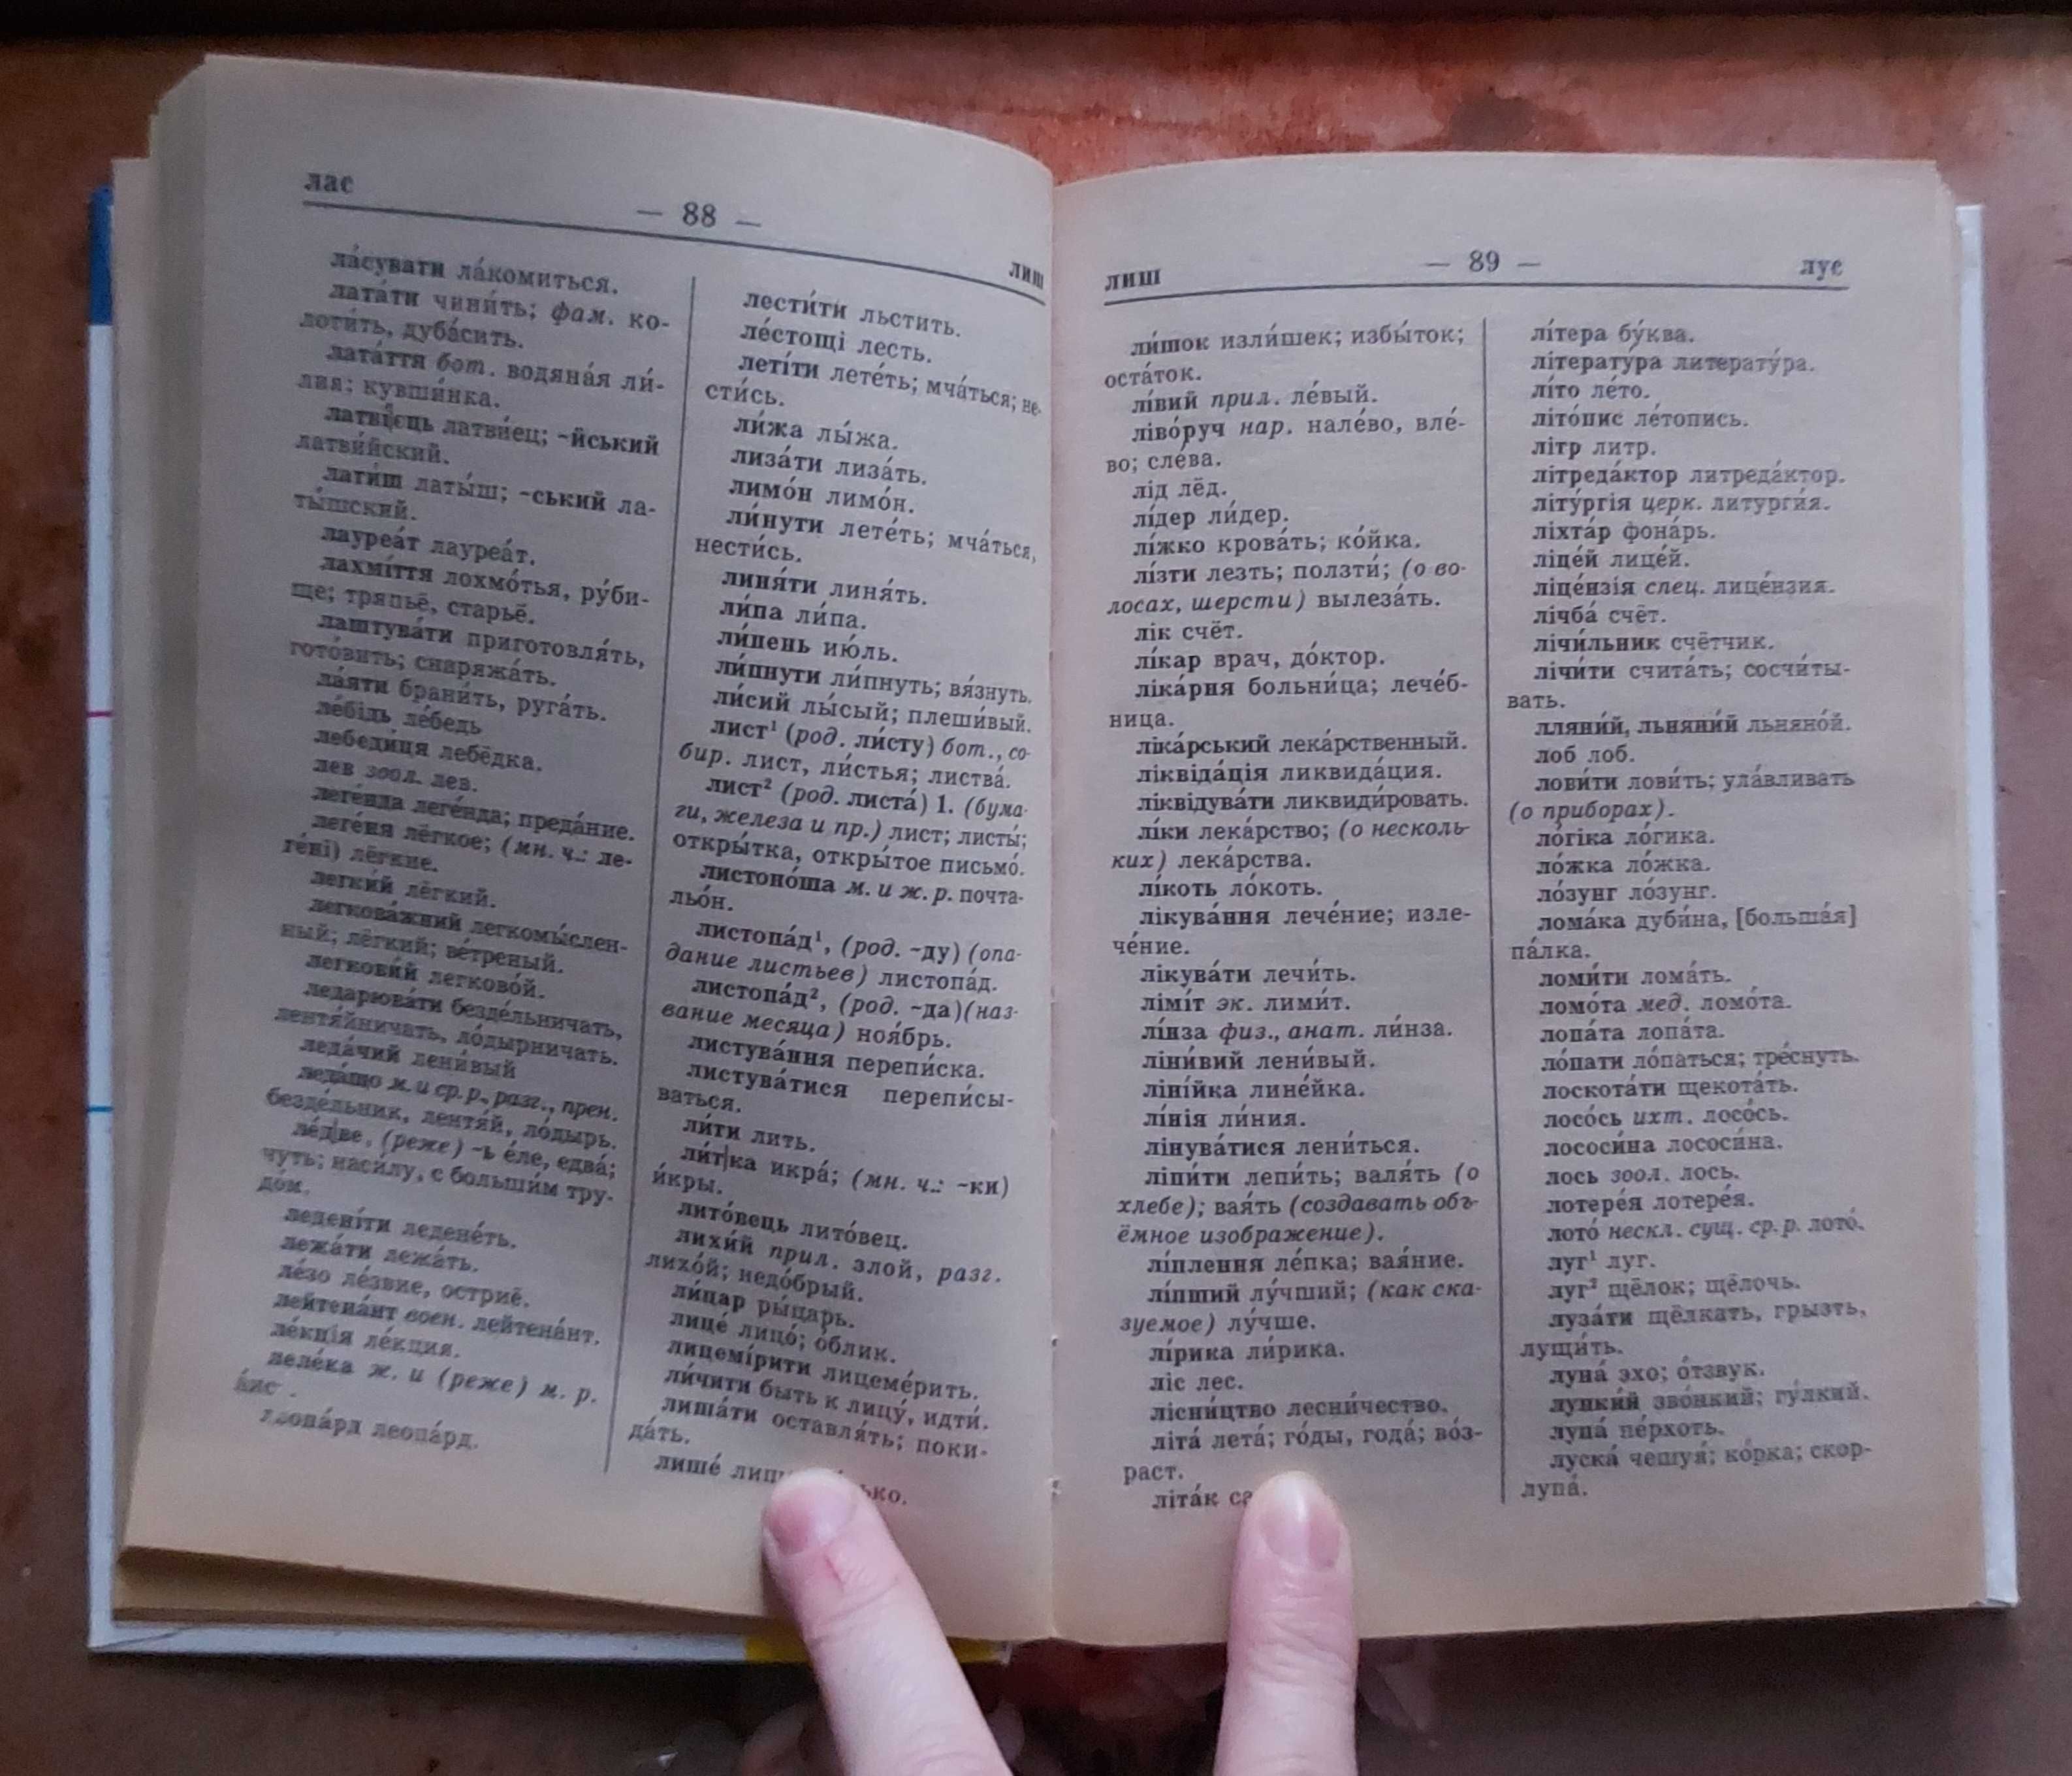 лас
— 88 —
лиш
ла́сувати ла́комиться.
лата́ти чини́ть; фам. ко-
лоти́ть, дуба́сить.
лата́ття бот. водяна́я ли́-
лия; кувши́нка.
латві́|єць латви́ец; ~йський
латви́йский.
лати́ш латы́ш; ~ський ла-
ты́шский.
лауреа́т лауреа́т.
лахмі́ття лохмо́тья, ру́би-
ще; тряпьё, старьё.
лаштува́ти приготовля́ть,
гото́вить; снаряжа́ть.
ла́яти брани́ть, руга́ть.
ле́бідь ле́бедь
лебеди́ця лебёдка.
лев зоол. лев.
леге́нда леге́нда; преда́ние.
леге́ня лёгкое; (мн. ч.: ле-
ге́ні) лёгкие.
легки́й лёгкий.
легкова́жний легкомы́слен-
ный; лёгкий; ве́треный.
легкови́й легково́й.
ледарюва́ти безде́льничать,
лентя́йничать, ло́дырничать.
леда́чий лени́вый
леда́що м. и ср. р., разг., прен.
безде́льник, лентя́й, ло́дырь.
ле́д|ве, (реже) ~ь е́ле, едва́;
чуть; наси́лу, с больши́м тру-
до́м.
леденіти ледене́ть.
лежа́ти лежа́ть.
ле́зо ле́звие, остриё.
лейтена́нт воен. лейтена́нт.
ле́кція ле́кция.
леле́ка ж. и (реже) м. р.
леопа́рд леопа́рд.
лести́ти льстить.
ле́стощі лесть.
леті́ти лете́ть; мча́ться; не-
сти́сь.
ли́жа лы́жа.
лиза́ти лиза́ть.
лимо́н лимо́н.
ли́нути лете́ть; мча́ться,
нести́сь.
линя́ти линя́ть.
ли́па ли́па.
ли́пень ию́ль.
ли́пнути ли́пнуть; вя́знуть.
ли́сий лы́сый; плеши́вый.
лист¹ (род. ли́сту) бот., со-
бир. лист, ли́стья; листва́.
лист² (род. листа́) 1. (бума-
ги, железа и пр.) лист; листы́;
откры́тка, откры́тое письмо́.
листоно́ша м. и ж. р. почта-
льо́н.
листопа́д¹, (род. ~ду) (опа-
дание листьев) листопа́д.
листопа́д², (род. ~да)(наз-
вание месяца) ноя́брь.
листува́ння перепи́ска.
листува́тися перепи́сы-
ваться.
ли́ти лить.
ли́т|ка икра́; (мн. ч.: ~ки)
и́кры.
лито́вець лито́вец.
лихи́й прил. злой, разг.
лихо́й; недо́брый.
ли́цар ры́царь.
лице́ лицо́; о́блик.
лицемі́рити лицеме́рить.
ли́чити быть к лицу́, идти́.
лиша́ти оставля́ть; поки-
да́ть.
лише́
лиш
— 89 —
лус
ли́шок изли́шек; избы́ток;
оста́ток.
лі́вий прил. ле́вый.
ліво́руч нар. нале́во, вле́-
во; сле́ва.
лід лёд.
лі́дер ли́дер.
лі́жко крова́ть; ко́йка.
лі́зти лезть; ползти́; (о во-
лосах, шерсти) вылеза́ть.
лік счёт.
лі́кар врач, до́ктор.
ліка́рня больни́ца; лече́б-
ница.
ліка́рський лека́рственный.
ліквіда́ція ликвида́ция.
ліквідува́ти ликвиди́ровать.
лі́ки лека́рство; (о несколь-
ких) лека́рства.
лі́коть ло́коть.
лікува́ння лече́ние; изле-
че́ние.
лікува́ти лечи́ть.
лімі́т эк. лими́т.
лі́нза физ., анат. ли́нза.
ліни́вий лени́вый.
ліні́йка лине́йка.
лі́нія ли́ния.
лінува́тися лени́ться.
ліпи́ти лепи́ть; валя́ть (о
хлебе); вая́ть (создавать объ-
ёмное изображение).
лі́плення ле́пка; вая́ние.
лі́пший лу́чший; (как ска-
зуемое) лу́чше.
лі́рика ли́рика.
ліс лес.
лісни́цтво лесни́чество.
літа́ лета́; го́ды, года́; во́з-
раст.
літа́к
лі́тера бу́ква.
літерату́ра литерату́ра.
лі́то ле́то.
літо́пис ле́топись.
літр литр.
літреда́ктор литреда́ктор.
літу́ргія церк. литурги́я.
ліхта́р фона́рь.
ліце́й лице́й.
ліце́нзія спец. лице́нзия.
лічба́ счёт.
лічи́льник счётчик.
лічи́ти счита́ть; сосчи́ты-
вать.
лляни́й, льняни́й льняно́й.
лоб лоб.
лови́ти лови́ть; ула́вливать
(о приборах).
ло́гіка ло́гика.
ло́жка ло́жка.
ло́зунг ло́зунг.
лома́ка дуби́на, [больша́я]
па́лка.
ломи́ти лома́ть.
ломо́та мед. ломо́та.
лопа́та лопа́та.
ло́пати ло́паться; тре́снуть.
лоскота́ти щекота́ть.
лосо́сь ихт. лосо́сь.
лососи́на лососи́на.
лось зоол. лось.
лотере́я лотере́я.
лото́ нескл. сущ. ср. р. лото́.
луг¹ луг.
луг² щёлок; щёлочь.
луза́ти щёлкать, грызть,
лущи́ть.
луна́ эхо; о́тзвук.
лунки́й зво́нкий; гу́лкий.
лупа́ пе́рхоть.
луска́ чешуя́; ко́рка; скор-
лупа́.